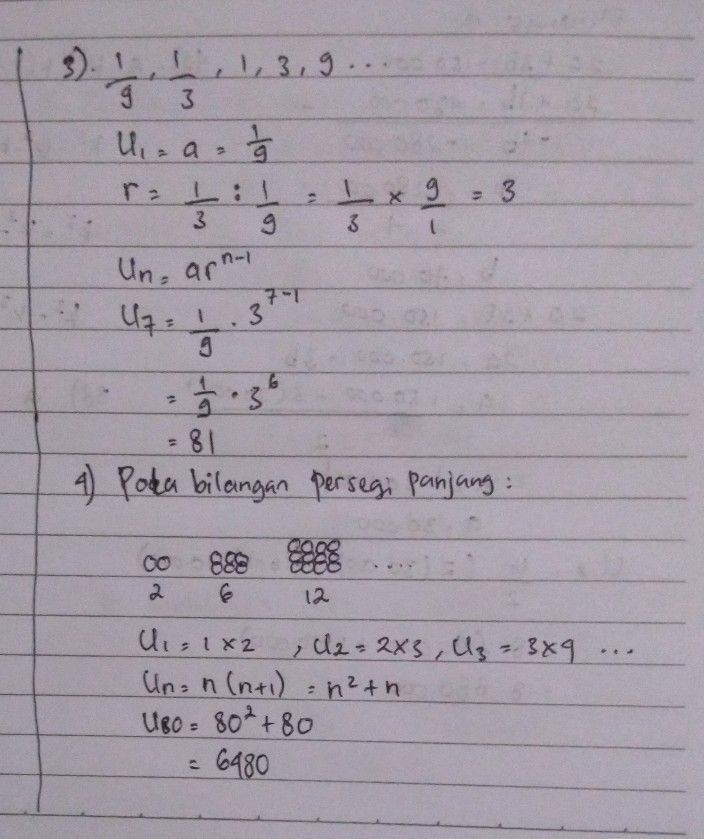 3). 1/9, 1/3, 1, 3, 9 ...
U₁ = a = 1/9
r = 1/3 : 1/9 = 1/3 × 9/1 = 3
Un = arⁿ⁻¹
U₇ = 1/9 . 3⁷⁻¹
= 1/9 . 3⁶
= 81
4) Pola bilangan persegi panjang :
....
2 6 12
U₁ = 1 × 2 , U₂ = 2×3 , U₃ = 3×4 ...
Un = n (n+1) = n² + n
U80 = 80² + 80
= 6480